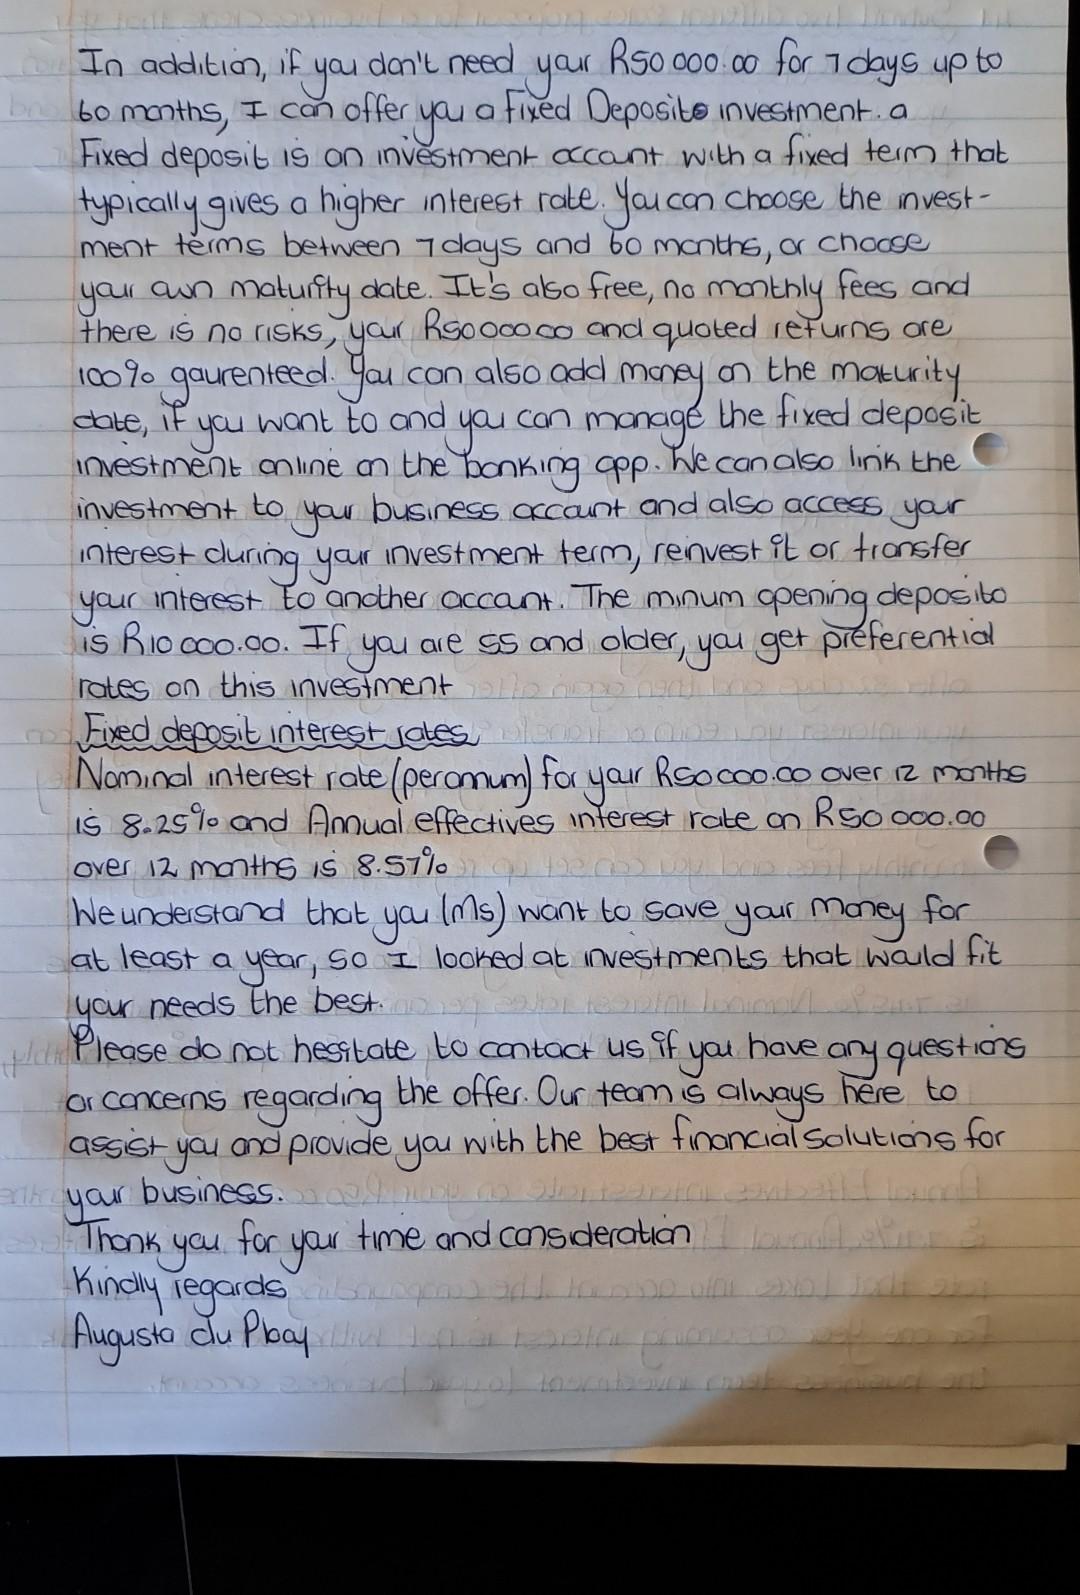 In addition, if you don't need your R50 000.00 for 7 days up to
60 months, I can offer you a fixed Deposito investment. a
Fixed deposit is an investment account with a fixed term that
typically gives a higher interest rate. You can choose the invest-
ment terms between 7 days and 60 months, or choose
your own maturity date. It's also free, no monthly fees and
there is no risks, your R5000000 and quoted returns are
100% gaurenteed. You can also add money on the maturity
date, if you want to and you can manage the fixed deposit
investment online on the banking app. We can also link the
investment to your business account and also access your
interest during your investment term, reinvest it or transfer
your interest to another account. The minum opening deposito
is R10 000.00. If you are 55 and older, you get preferential
rates on this investment
Fixed deposit interest rates
Nominal interest rate (perannum) for your R50000.00 over 12 months
is 8.25% and Annual effectives interest rate on R50 000.00
over 12 months is 8.57%
We understand that you (Ms) want to save your money for
at least a year, so I looked at investments that would fit
your needs the best.
Please do not hesitate to contact us if you have any questions
or concerns regarding the offer. Our team is always here to
assist you and provide you with the best financial solutions for
your business.
Thank you for your time and consideration
Kindly regards
Augusta du Plooy